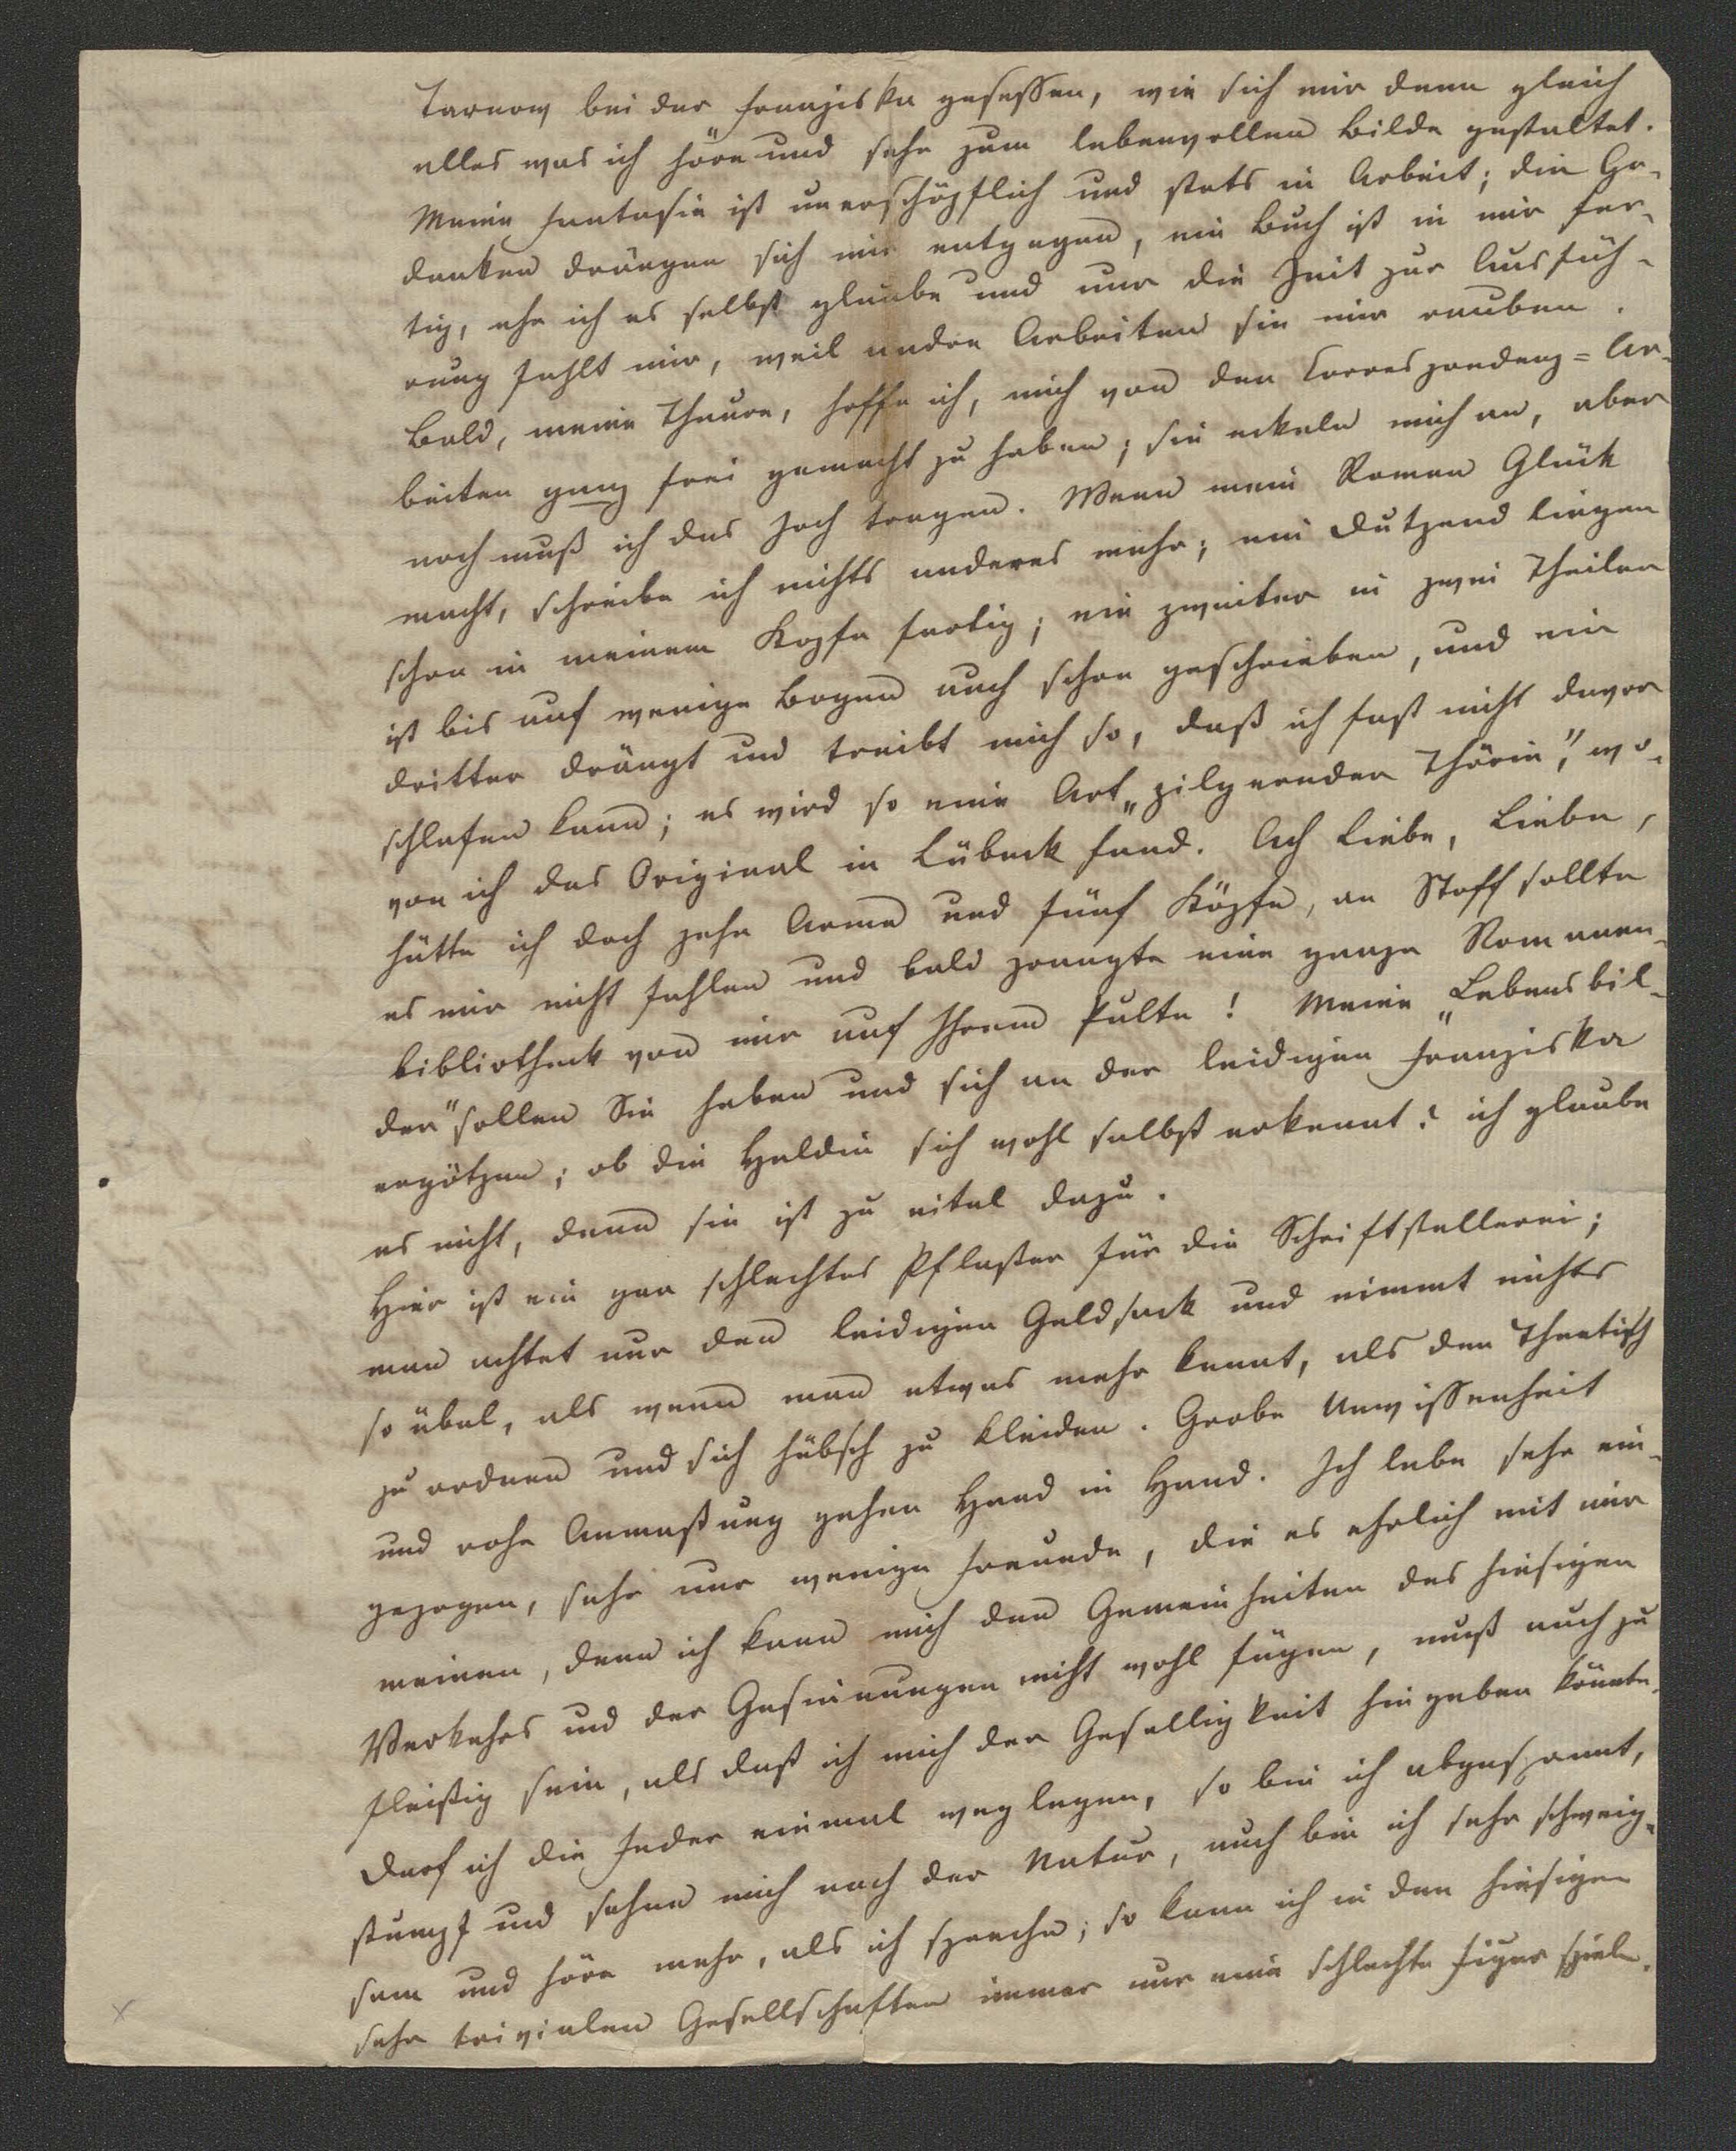 Tarnow bei der Franziska gesessen, wie sich mir denn gleich
alles was ich höre und sehe zum lebenvollen Bilde gestaltet.
Meine Fantasie ist unerschöpflich und stets in Arbeit; die Ge-
danken drängen sich mir entgegen, ein Buch ist in mir fer-
tig, ehe ich es selbst glaube und nur die Zeit zur Ausfüh-
rung fehlt mir, weil andre Arbeiten sie mir rauben.
Bald, meine Theure, hoffe ich, mich von den Correspondenz=Ar-
beiten ganz frei gemacht zu haben; sie eckeln mich an, aber
noch muß ich das Joch tragen. Wenn mein Roman Glück
macht, schreibe ich nichts anderes mehr; ein Dutzend liegen
schon in meinem Kopfe fertig; ein zweiter in zwei Theilen
ist bis auf wenige Bogen auch schon geschrieben, und ein
dritter drängt und treibt mich so, daß ich fast nicht davor
schlafen kann; es wird so eine Art „pilgernder Thörin", wo-
von ich das Original in Lübeck fand. Ach Liebe, Liebe,
hätte ich doch zehn Arme und fünf Köpfe, an Stoff sollte
es mir nicht fehlen und bald prangte eine ganze Romanen-
bibliotheck von mir auf Ihrem Pulte! Meine „Lebensbil-
der" sollen Sie haben und sich an der leidigen Franziska
ergötzen; ob die Heldin sich wohl selbst erkennt? ich glaube
es nicht, denn sie ist zu eitel dazu.
Hier ist ein gar schlechtes Pflaster für die Schriftstellerei;
man achtet nur den leidigen Geldsack und nimmt nichts
so übel, als wenn man etwas mehr kennt, als den Theetisch
zu ordnen und sich hübsch zu kleiden. Grobe Unwissenheit
und rohe Anmaßung gehen Hand in Hand. Ich lebe sehr ein-
gezogen, sehe nur wenige Freunde, die es ehrlich mit mir
meinen, denn ich kann mich den Gemeinheiten des hiesigen
Verkehrs und der Gesinnungen nicht wohl fügen, muß auch zu
fleißig sein, als daß ich mich der Geselligkeit hingeben könnte.
Darf ich die Feder einmal weglegen, so bin ich abgespannt,
stumpf und sehne mich nach der Natur, auch bin ich sehr schweig-
sam und höre mehr, als ich spreche; so kann ich in den hiesigen
sehr trivialen Gesellschaften immer nur eine schlechte Figur spielen.